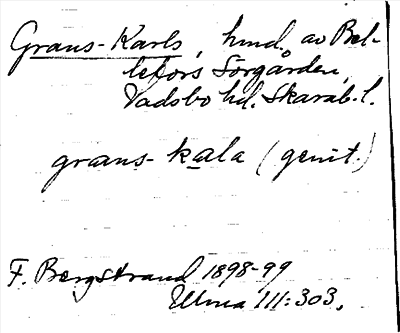 Grans-Karls, hmd. av Bel-
lefors Sörgården,
Vadsbo hd. Skarab. l.
grans-kala (genit.)
F. Bergstrand 1898-99
Ullma 111:303.